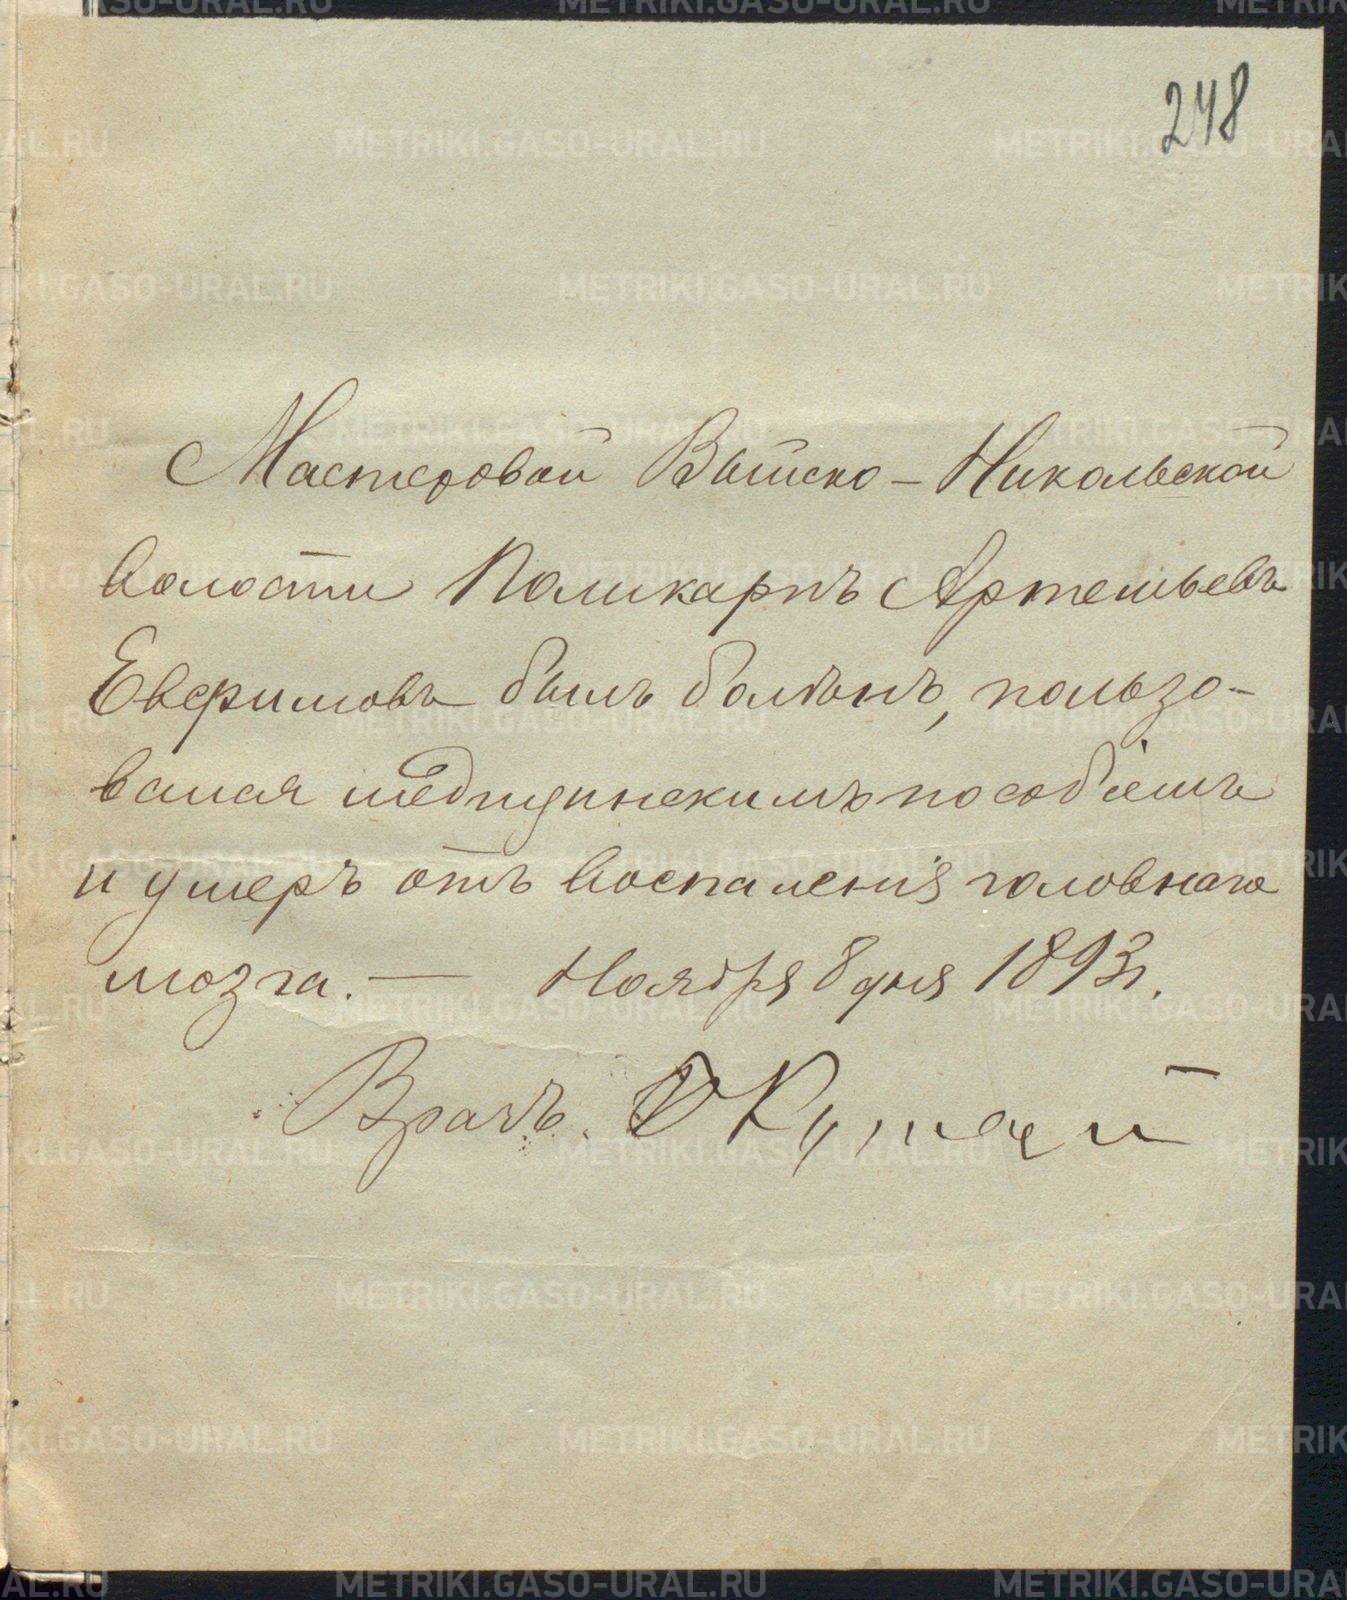 248
Мастеровой Выйско-Никольской
волости Поликарпъ Артемьевъ
Евфимовъ былъ болѣнъ, пользо-
вался медицинскимъ пособіемъ
и умеръ отъ воспаленія головнаго
мозга. — Ноября 8 дня 1893 г.
Врачъ
METRIKI.GASO-URAL.RU